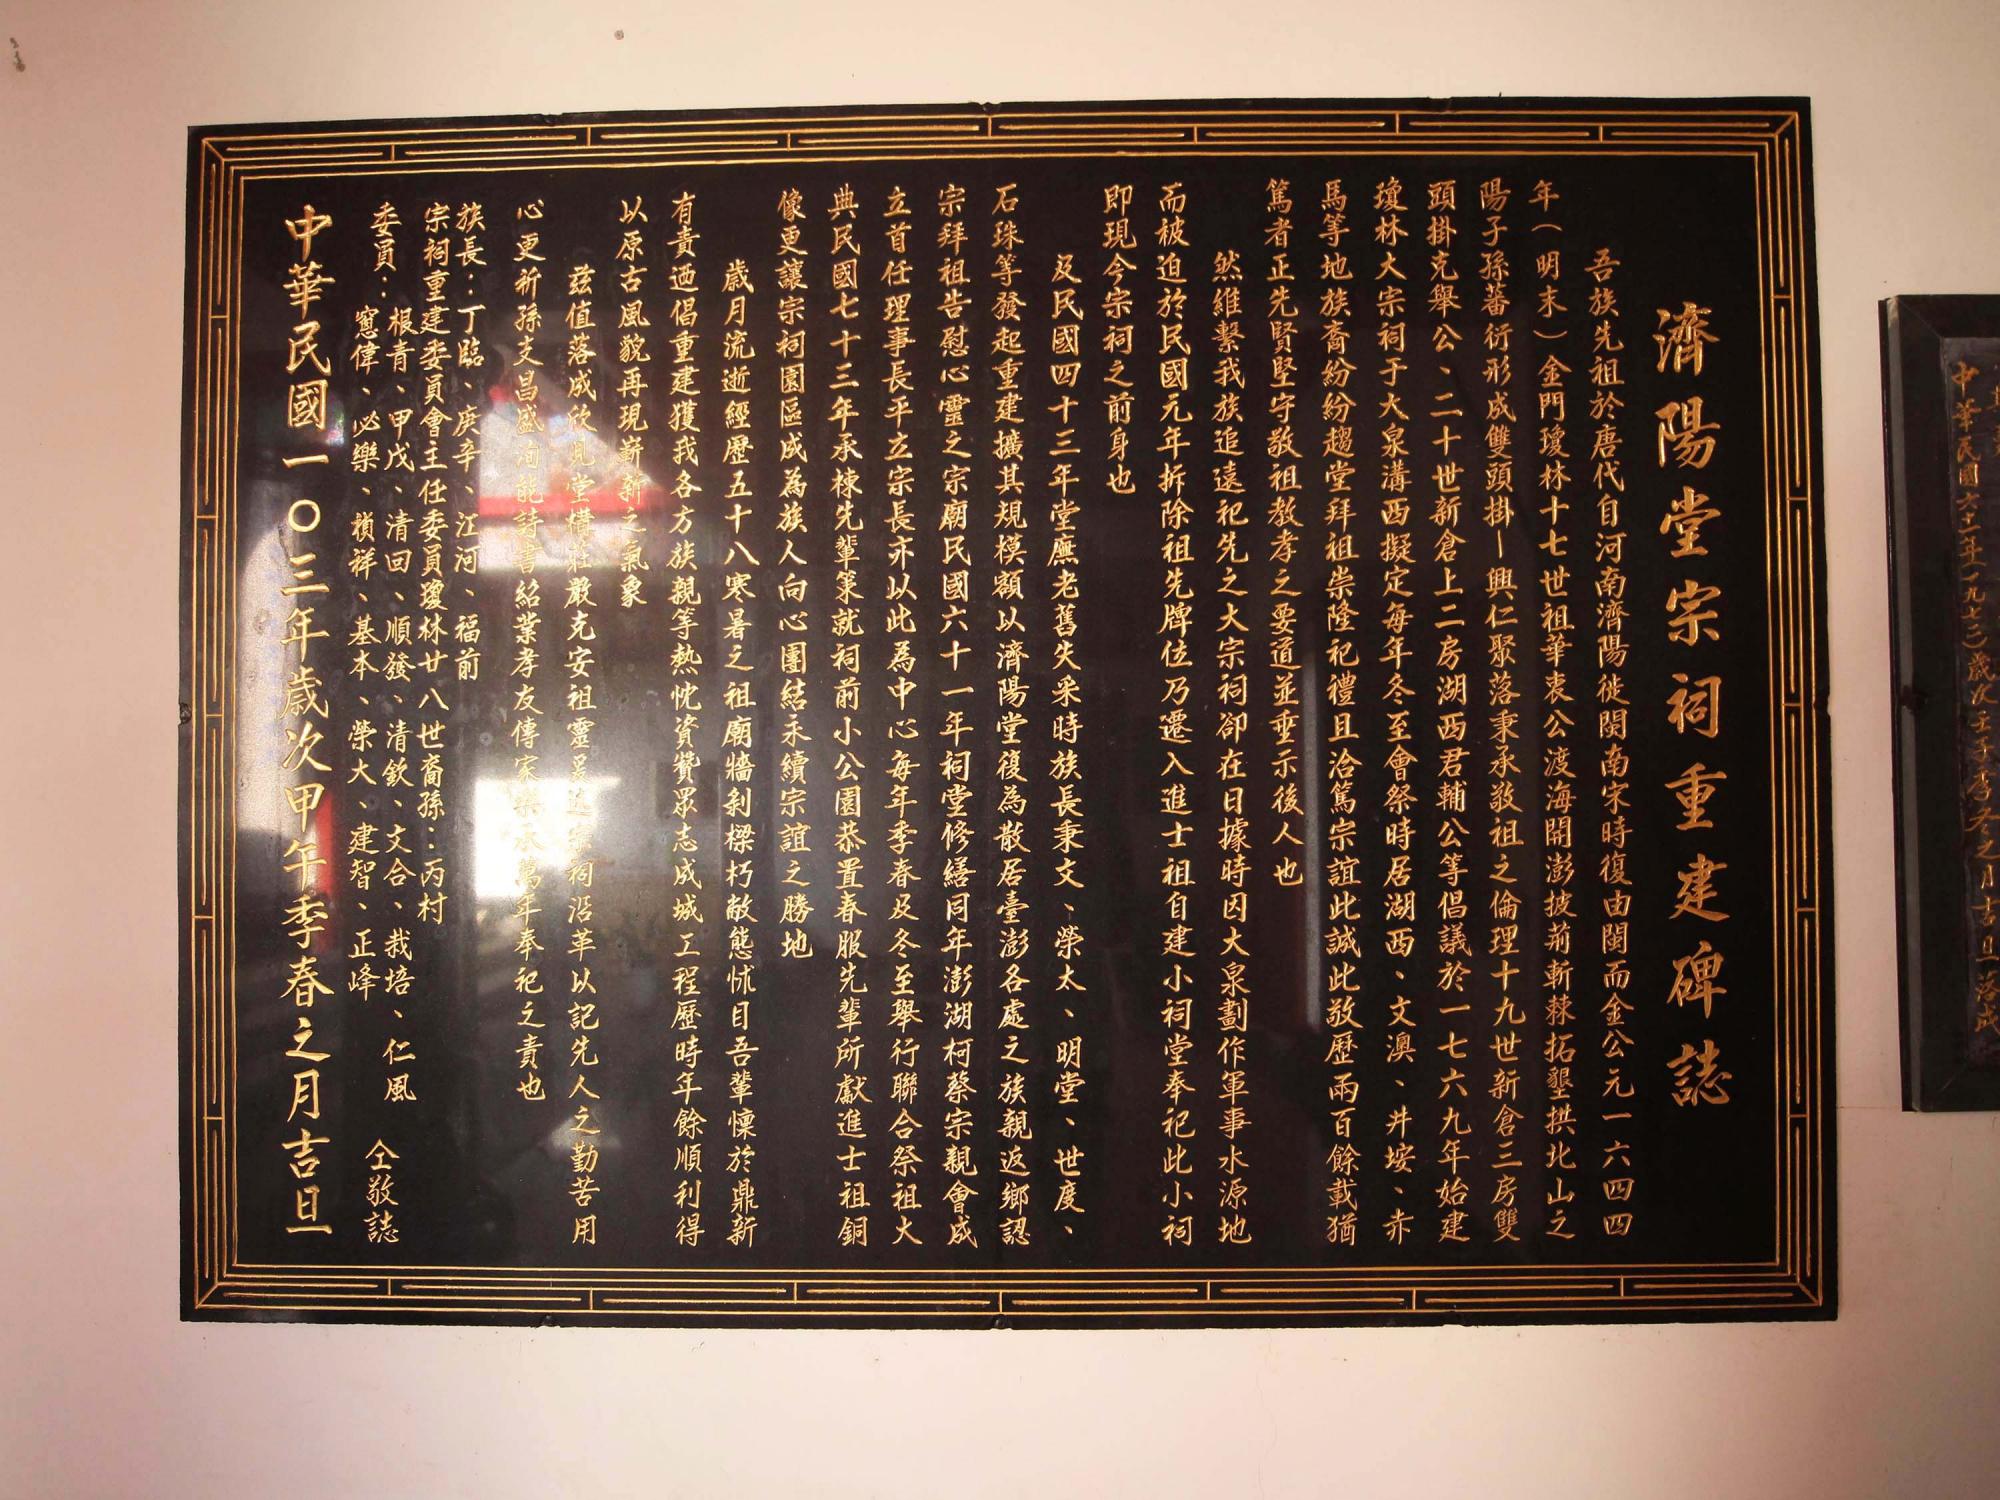 濟陽堂宗祠重建碑誌
吾族先祖於唐代自河南濟陽徙閩南宋時復由閩而金公元一六四四
年(明末)金門瓊林十七世祖華衷公渡海開澎披荊斬棘拓墾拱北山之
陽子孫蕃衍形成雙頭掛—興仁聚落秉承敬祖之倫理十九世新倉三房雙
頭掛克舉公、二十世新倉上二房湖西君輔公等倡議於一七六九年始建
瓊林大宗祠于大泉溝西擬定每年冬至會祭時居湖西、文澳、井垵、赤
馬等地族裔紛紛趨堂拜祖崇隆祀禮且洽篤宗誼此誠此敬歷兩百餘載猶
篤者正先賢堅守敬祖教孝之要道並垂示後人也
然維繫我族追遠祀先之大宗祠卻在日據時因大泉劃作軍事水源地
而被迫於民國元年拆除祖先牌位乃遷入進士祖自建小祠堂奉祀此小祠
即現今宗祠之前身也
及民國四十三年堂廡老舊失采時族長秉文、榮太、明堂、世度、
石珠等發起重建擴其規模額以濟陽堂復為散居臺澎各處之族親返鄉認
宗拜祖告慰心靈之宗廟民國六十一年祠堂修繕同年澎湖柯蔡宗親會成
立首任理事長平立宗長亦以此為中心每年季春及冬至舉行聯合祭祖大
典民國七十三年承棟先輩策就祠前小公園恭置春服先輩所獻進士祖銅
像更讓宗祠園區成為族人向心團結永續宗誼之勝地
歲月流逝經歷五十八寒暑之祖廟牆剝樑朽敝態怵目吾輩懍於鼎新
有責迺倡重建獲我各方族親等熱忱資贊眾志成城工程歷時年餘順利得
以原古風貌再現嶄新之氣象
茲值落成欣見堂構莊嚴克安祖靈爰述宗祠沿革以記先人之勤苦用
心更祈孫支昌盛洵能詩書紹業孝友傳家樂承萬年奉祀之責也
族長：丁臨、庚辛、江河、福前
宗祠重建委員會主任委員瓊林廿八世裔孫：丙村
委員：根青、甲戊、清回、順發、清欽、文合、栽培、仁風
窓偉、必樂、禎祥、基本、榮大、建智、正峰
仝敬誌
中華民國一〇三年歲次甲午季春之月吉旦
中華民國六十一年(一九七二)歲次壬子季冬之月吉旦落成